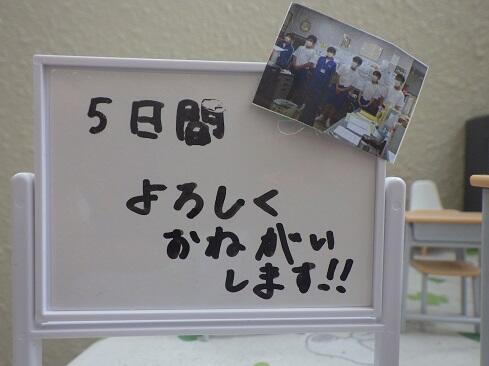 5日間
よろしく
おねがい
します!!